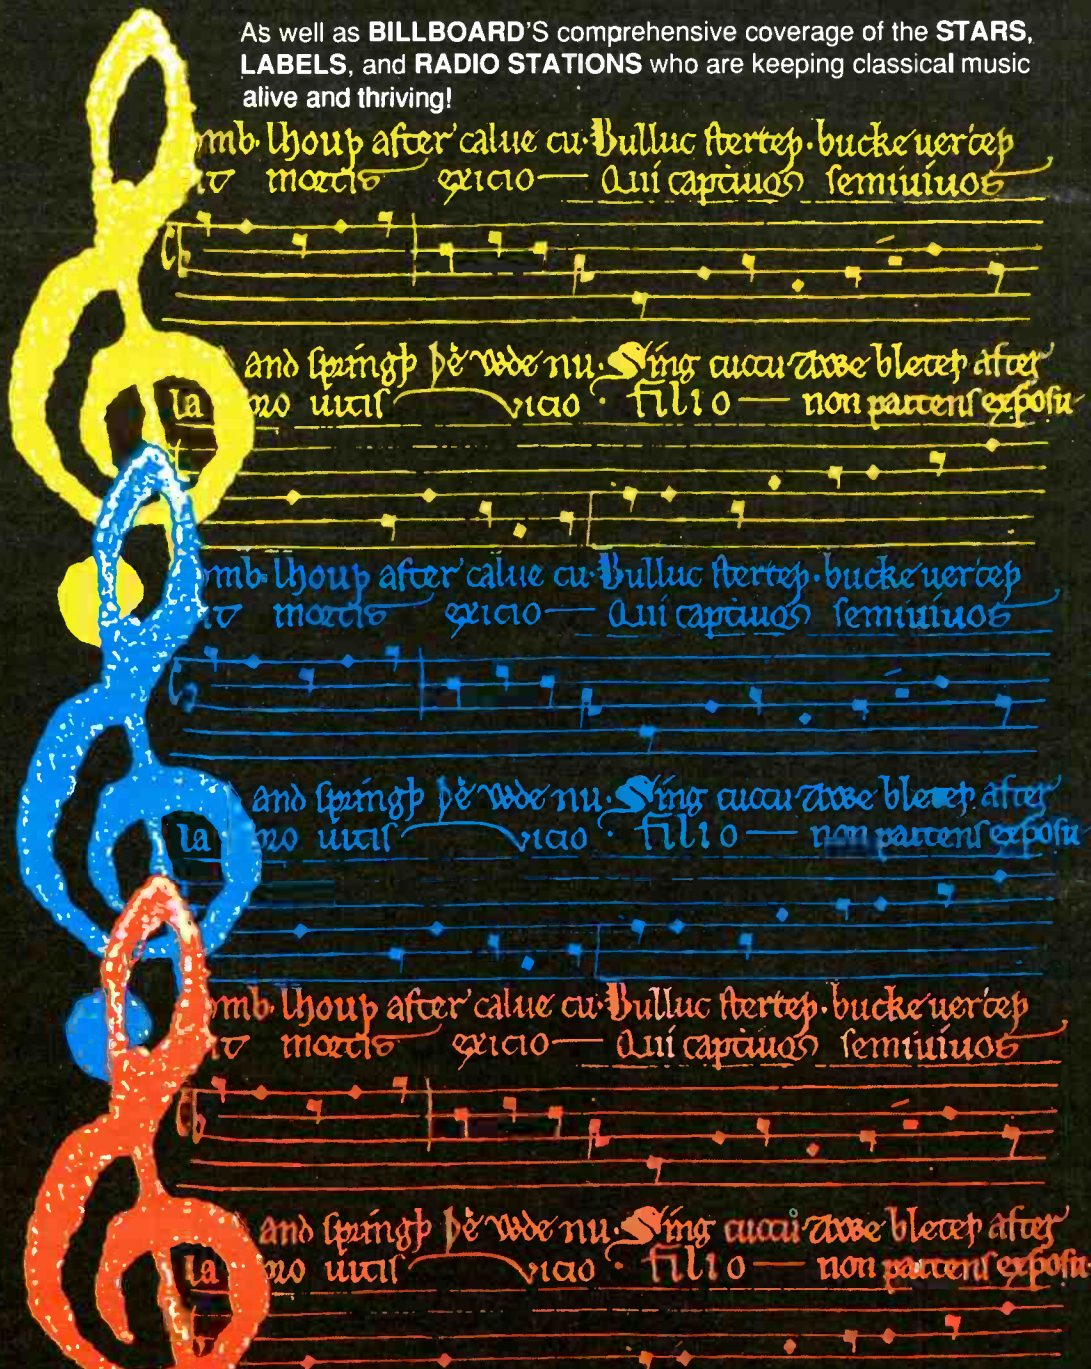 As well as BILLBOARD'S comprehensive coverage of the STARS,
LABELS, and RADIO STATIONS who are keeping classical music
alive and thriving!
omb· lhouþ after calue cu· Bulluc sterteþ· bucke uerteþ
mortis exicio — Qui captiuos semiuiuos
and springþ þe wde nu· Sing cuccu Awe bleteþ after
la pro uitis vicio· filio — non parcens exposu-
omb· lhouþ after calue cu· Bulluc sterteþ· bucke uerteþ
mortis exicio — Qui captiuos semiuiuos
and springþ þe wde nu· Sing cuccu Awe bleteþ after
la pro uitis vicio· filio — non parcens exposu-
omb· lhouþ after calue cu· Bulluc sterteþ· bucke uerteþ
mortis exicio — Qui captiuos semiuiuos
and springþ þe wde nu· Sing cuccu Awe bleteþ after
la pro uitis vicio· filio — non parcens exposu-